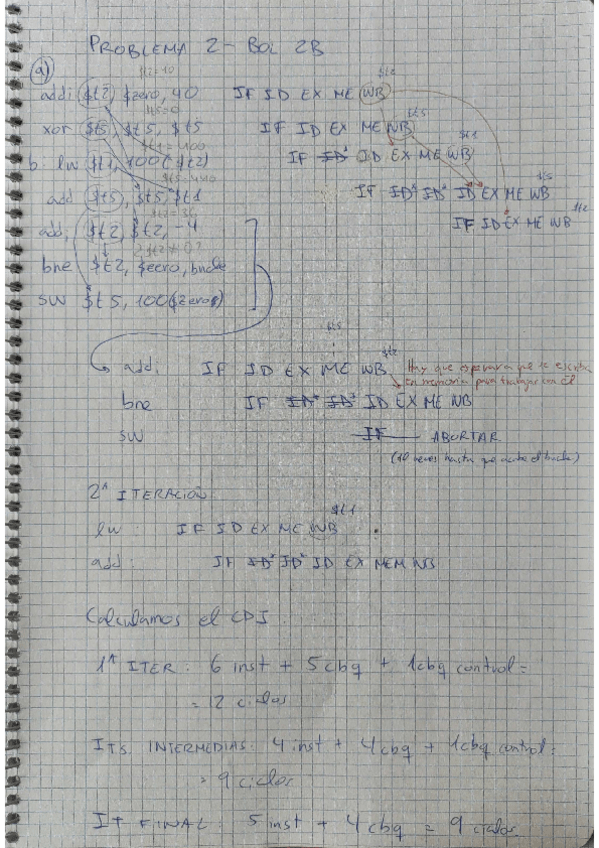 PROBLEMA 2 - BOL 2B
a)
$t2=40
$t2
addi $t2, $zero, 40 IF ID EX ME WB
$t5=0
$t5
xor $t5, $t5, $t5 IF ID EX ME WB
$t1
b: lw $t1, 100($t2) IF ID ID EX ME WB
$t5
add $t5, $t5, $t1 IF ID ID ID EX ME WB
$t2
addi $t2, $t2, -4 IF ID EX ME WB
bne $t2, $zero, bucle
sw $t5, 100($zero)
$t2
addi IF ID EX ME WB Hay que esperar a que se escriba
en memoria para trabajar con él
bne IF ID ID ID EX ME WB
sw IF ABORTAR
(10 veces hasta que acabe el bucle)
2ª ITERACIÓN
$t1
lw: IF ID EX ME WB
add: IF ID ID ID EX MEM WB
Calculamos el CPI:
1ª ITER: 6 inst + 5 cbq + 1 cbq control =
= 12 ciclos
ITs. INTERMEDIAS: 4 inst + 4 cbq + 1 cbq control:
= 9 ciclos
IT FINAL: 5 inst + 4 cbq = 9 ciclos